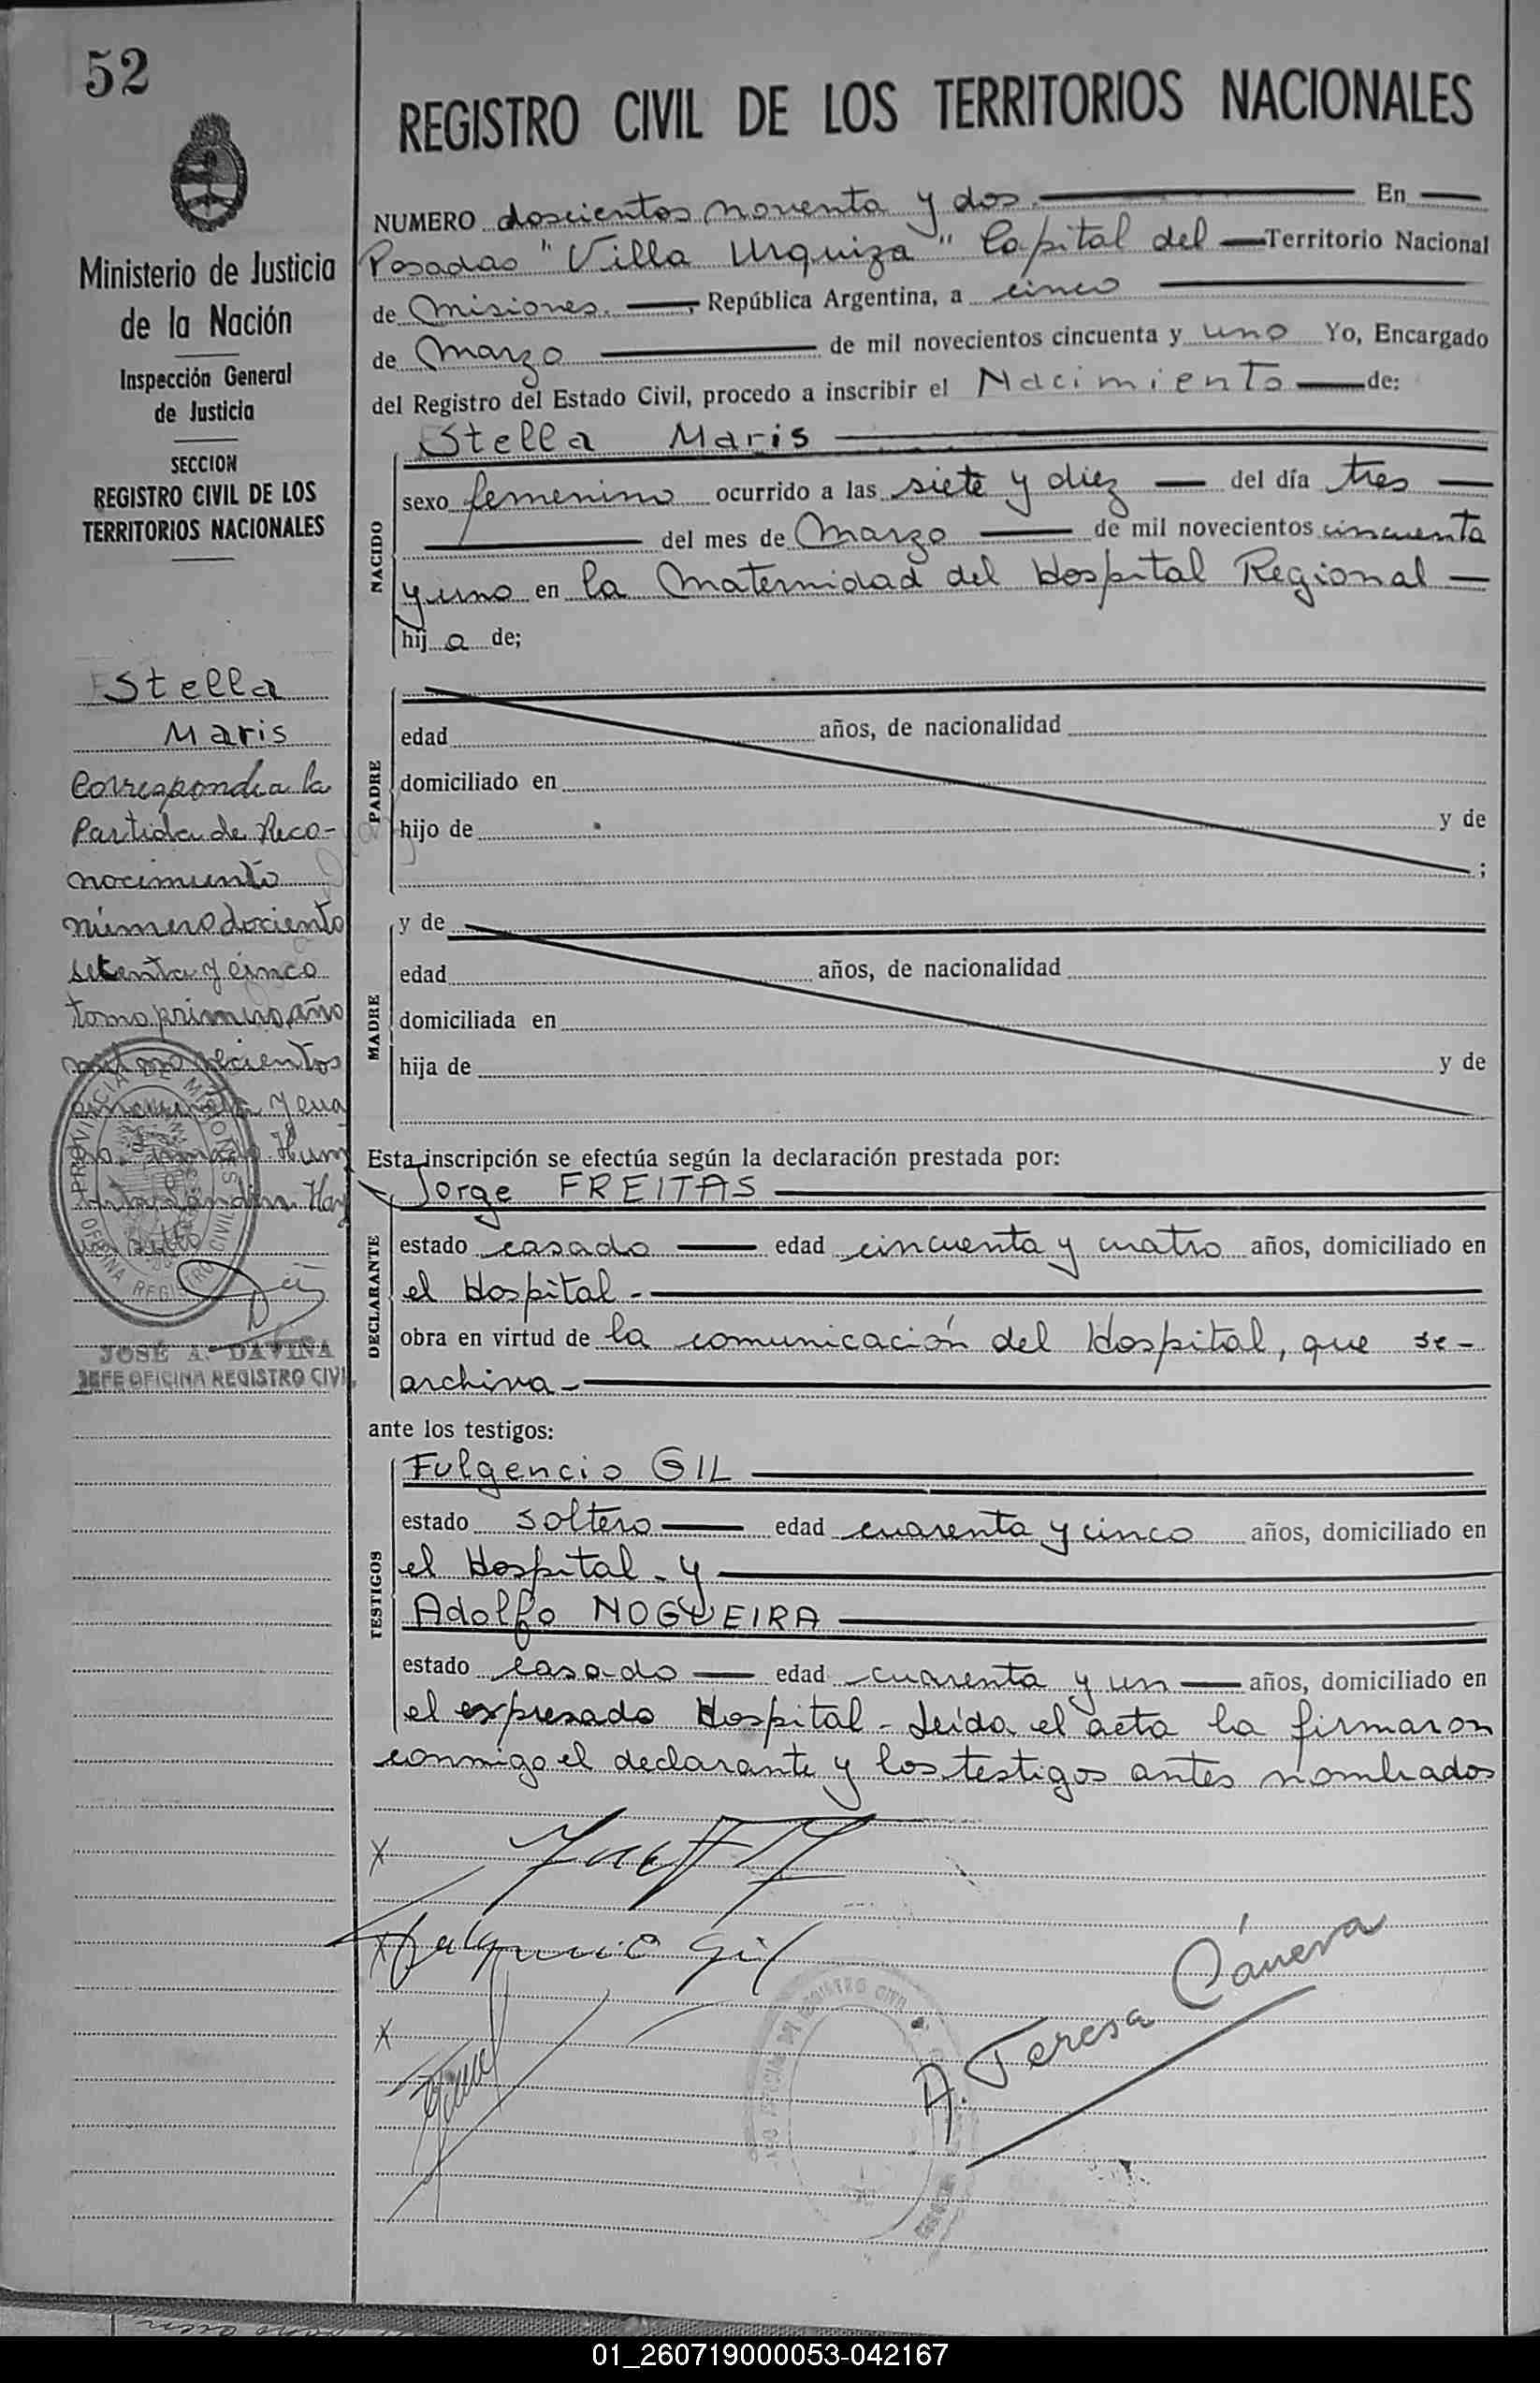 52
REGISTRO CIVIL DE LOS TERRITORIOS NACIONALES
Ministerio de Justicia
de la Nación
Inspección General
de Justicia
SECCION
REGISTRO CIVIL DE LOS
TERRITORIOS NACIONALES
Stella
Maris
Corresponde a la
Partida de Reco-
nocimiento
número dociento
setenta y cinco
tomo primero, año
mil novecientos
cincuenta y cua
PROVINCIA DE MISIONES
OFICINA REGISTRO CIVIL
JOSÉ A. DAVIÑA
JEFE OFICINA REGISTRO CIVIL
NUMERO doscientos noventa y dos. En
Posadas "Villa Urquiza" Capital del Territorio Nacional
de Misiones. , República Argentina, a cinco
de Marzo de mil novecientos cincuenta y uno Yo, Encargado
del Registro del Estado Civil, procedo a inscribir el Nacimiento de:
NACIDO
Stella Maris
sexo femenino ocurrido a las siete y diez del día tres
del mes de Marzo de mil novecientos cincuenta
y uno en la Maternidad del Hospital Regional
hij a de;
PADRE
edad años, de nacionalidad
domiciliado en
hijo de y de
;
MADRE
y de
edad años, de nacionalidad
domiciliada en
hija de y de
Esta inscripción se efectúa según la declaración prestada por:
DECLARANTE
Jorge FREITAS
estado casado edad cincuenta y cuatro años, domiciliado en
el Hospital.-
obra en virtud de la comunicación del Hospital, que se-
archiva-
ante los testigos:
TESTIGOS
Fulgencio GIL
estado soltero edad cuarenta y cinco años, domiciliado en
el Hospital. y
Adolfo NOGUEIRA
estado casado edad cuarenta y un años, domiciliado en
el expresado Hospital - Leida el acta la firmaron
conmigo el declarante y los testigos antes nombrados
x
x Fulgencio Gil
x
A. Teresa Cánera
01_260719000053-042167